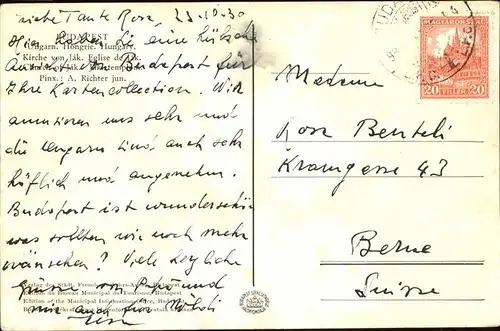 Liebe Tante Rosa, 23-10-30
BUDAPEST
Ungarn. Hongrie. Hungary.
Kirche von Ják. Eglise de Ják.
Pinx.: A. Richter jun.
Hier haben Sie eine hübsche
Ansicht von Budapest für
Ihre Kartencollection. Wir
amusieren uns sehr und
die Ungarn sind auch sehr
höflich und angenehm.
Budapest ist wunderschön
was sollten wir noch mehr
wünschen? Viele herzliche
Grüsse von Papa und
mir auch für Willi
Madame
Rosa Benteli
Kramgasse 43
Berne
Suisse
MAGYARORSZÁG
20 FILLÉR 20
Edition of the Municipal Information Office,